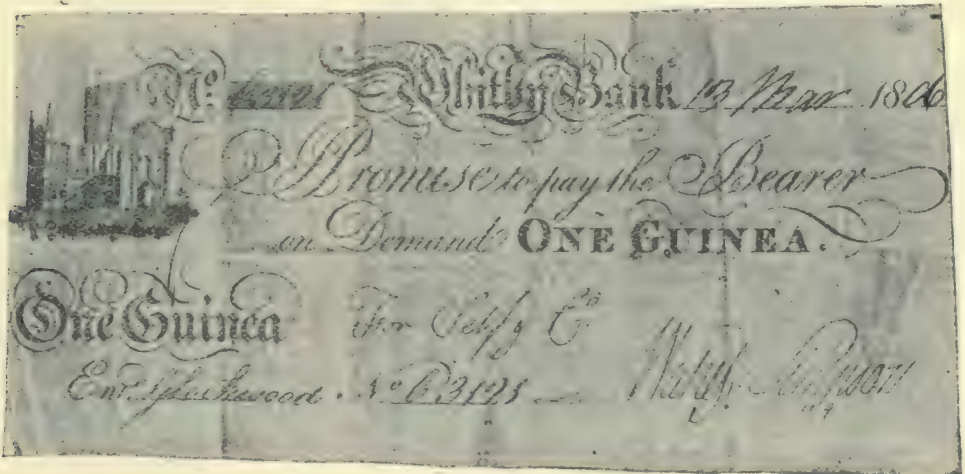 No Whitby Bank 13 Mar 1806
I Promise to pay the Bearer
on Demand ONE GUINEA.
One Guinea For Self & Co
Entd No B3191